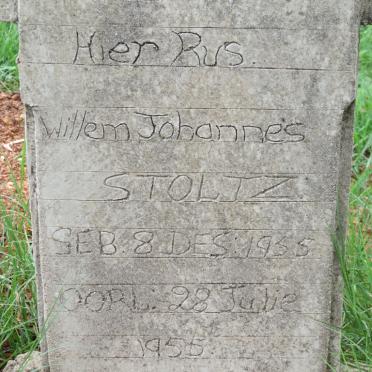 Hier Rus.
Willem Johannes
STOLTZ
GEB: 8 DES: 1955
OORL: 28 Julie
1955